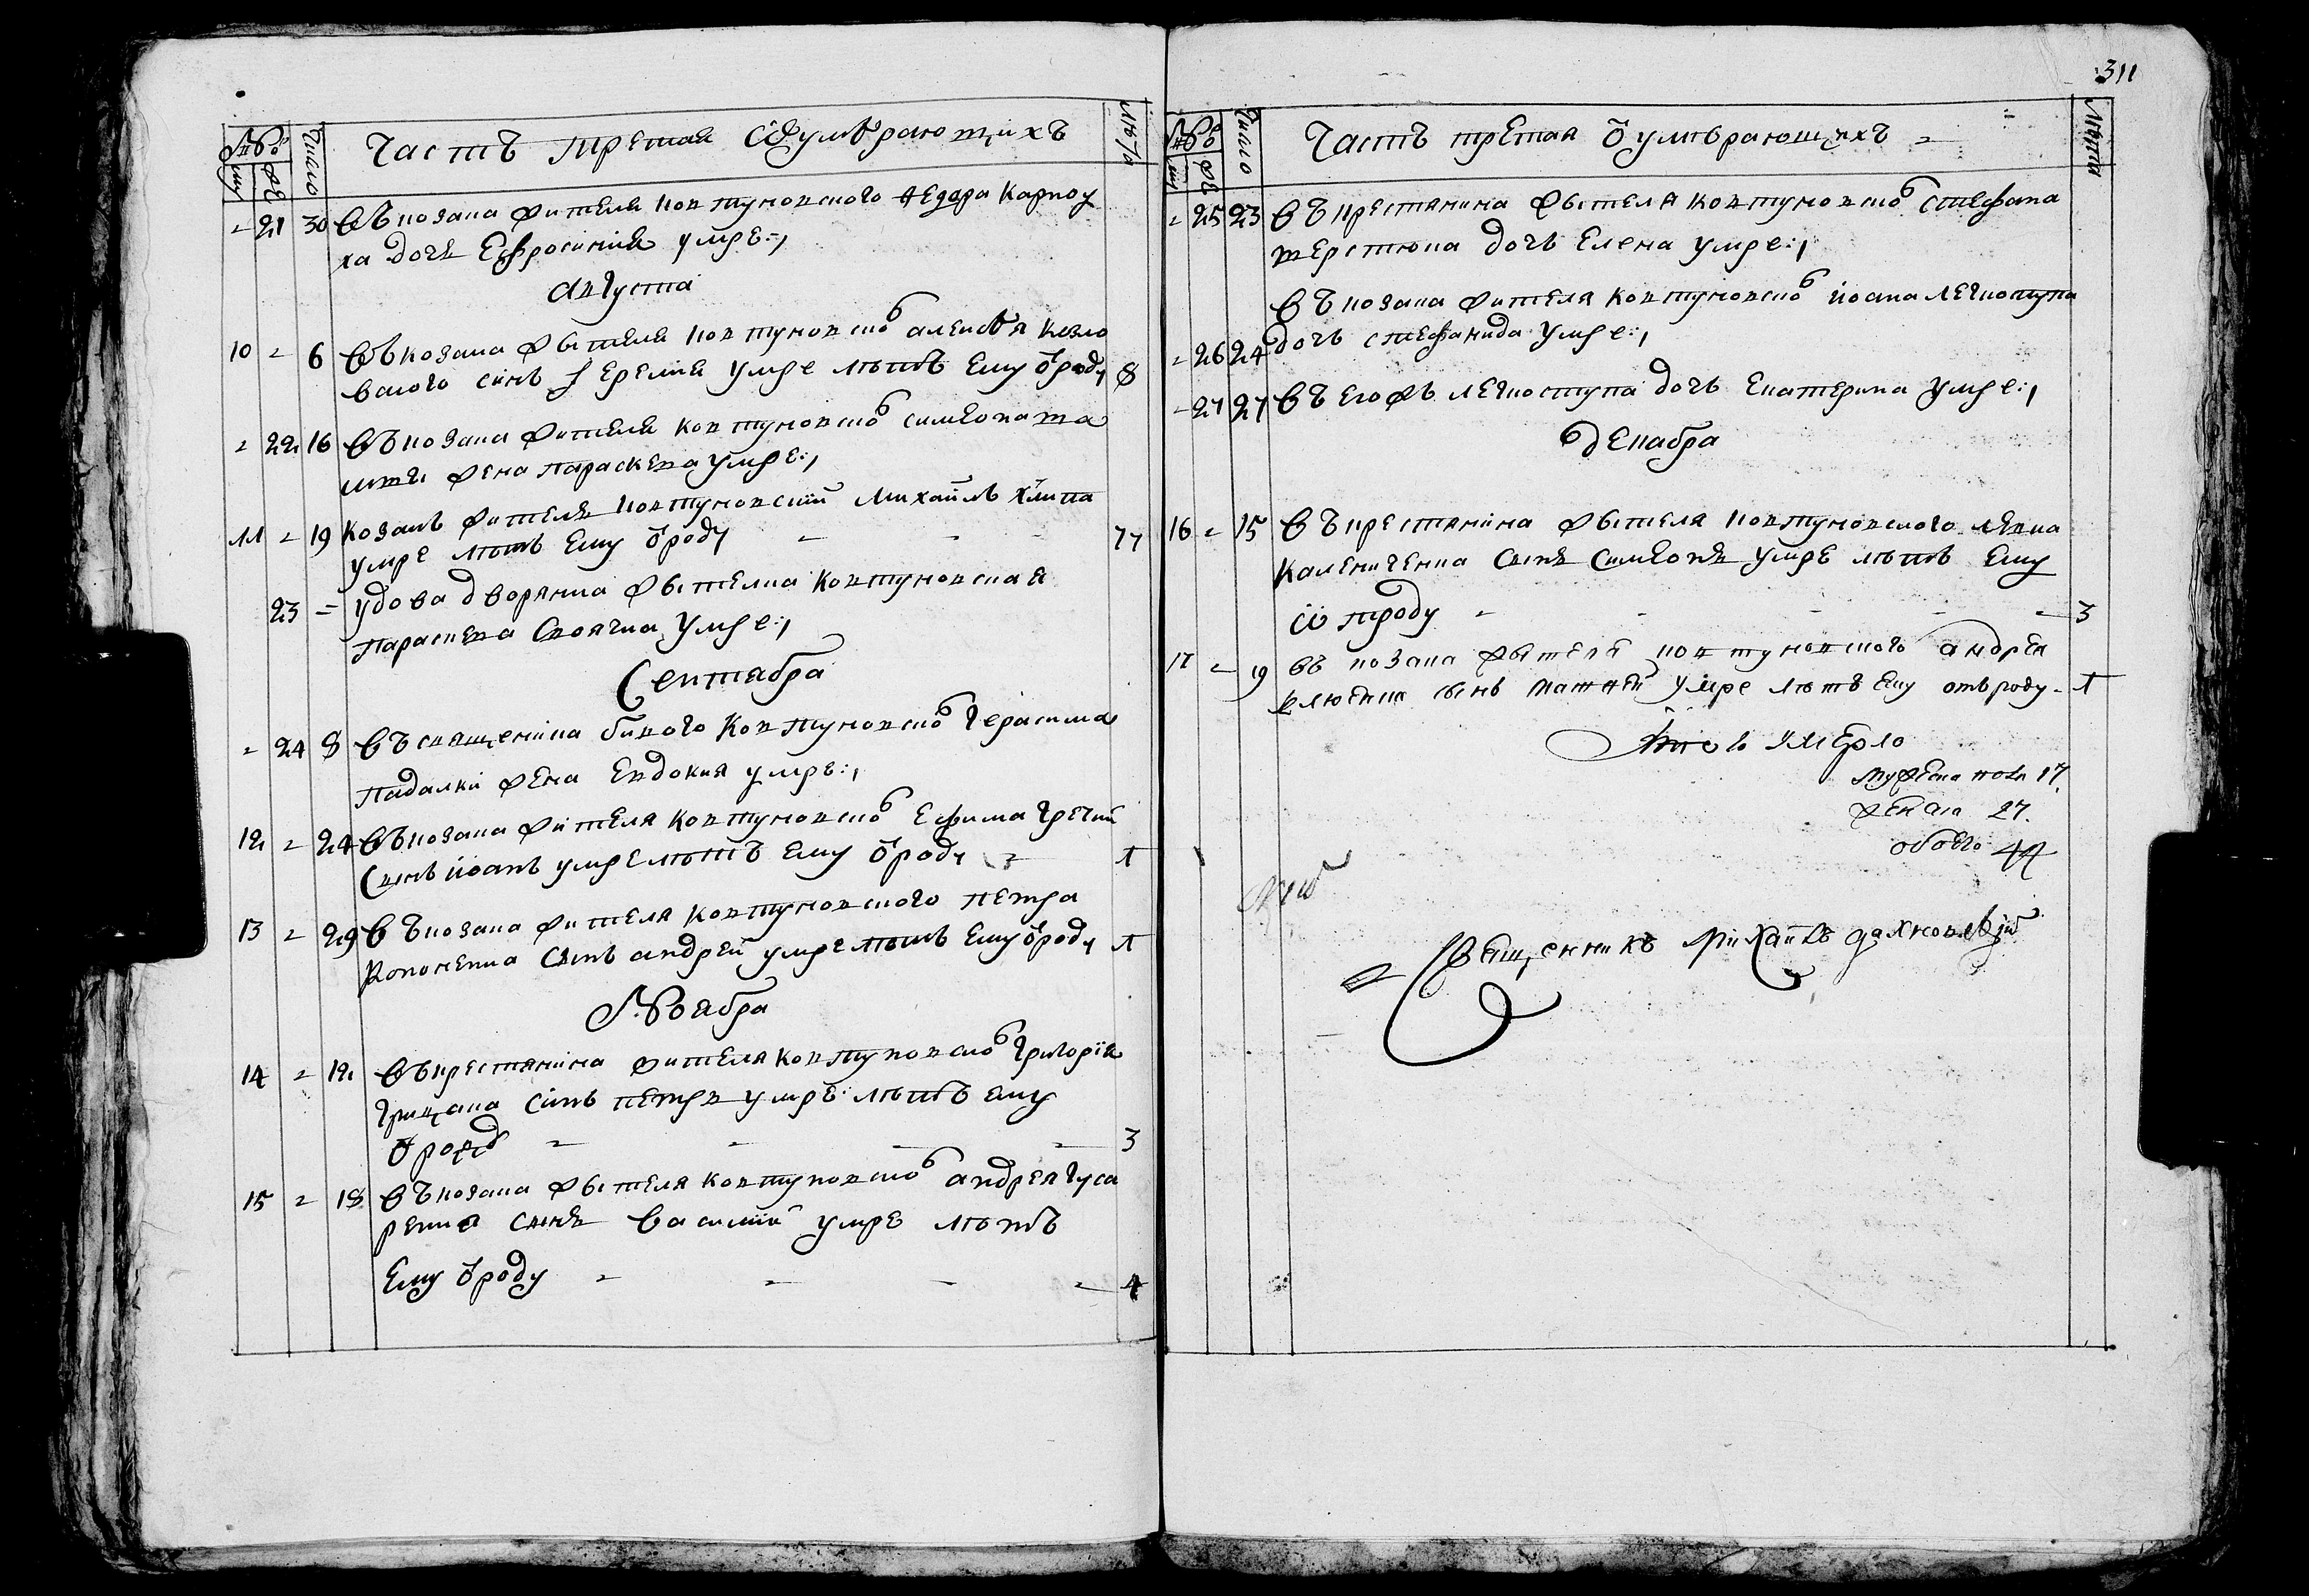 Часть третая Ѿ умѣрающихъ
№
Число
лѣта
му
же
- 21 30 Въ козака жителя ковтуновского Федора Карпу
ха дочь Ефросиния умре:,
Августа
10 - 6 Въ козака жытеля ковтуновско Алексѣя Козло
вского синъ Іеремия умре лѣтъ Ему ѿроду 8
- 22 16 Въ козака жителя ковтуновско Симеона
жена Параскева умре:,
11 - 19 Козакъ житель ковтуновский Михаилъ
умре лѣтъ Ему ѿроду - - - 77
23 - удова дворянка жытелка Ковтуновская
Параскева умре:,
Септабра
- 24 8 Въ священика бивого Ковтуновско Герасима
Падалки жена Евдокия умре:,
12 - 24 Въ козака жителя Ковтуновско Ефима
Синъ иоанъ умре лѣтъ Ему ѿроду - 1
13 - 29 Въ козака жителя Ковтуновского Петра
Кононенка Синъ андрей умре лѣтъ Ему ѿроду 1
Ноябра
14 - 12 Въ крестянина жителя Ковтуновско Григория
Грицака синъ петръ умре лѣтъ ему
ѿроду - - - - 3
15 - 18 Въ козака жытеля Ковтуновско андрея Гуса
ренка синъ Василий умре лѣтъ
Ему ѿроду - - - - 4
311
Часть третая ѿ умѣрающихъ -
№
Число
лѣта
му
же
- 25 23 Въ крестянина жытеля ковтуновско Стефана
Шерстюка дочь Елена умре:,
Въ козака жителя Ковтуновско иоана Легкоступа
- 26 24 дочь стефанида умре:,
- 27 27 Въ егожъ легкоступа дочь Екатерина умре:,
декабра
16 - 15 Въ крестянина жытеля ковтуновского левка
Каленіченка синъ Симеонъ умре лѣтъ Ему
ѿ роду - - - - 3
17 - 19 въ козака жытеля ковтуновского андрея
сынъ матфей умре лѣтъ ему отъ роду - 1
умерло
мужеска полу 17.
женска 27.
обоего 44
Священникъ Михаилъ